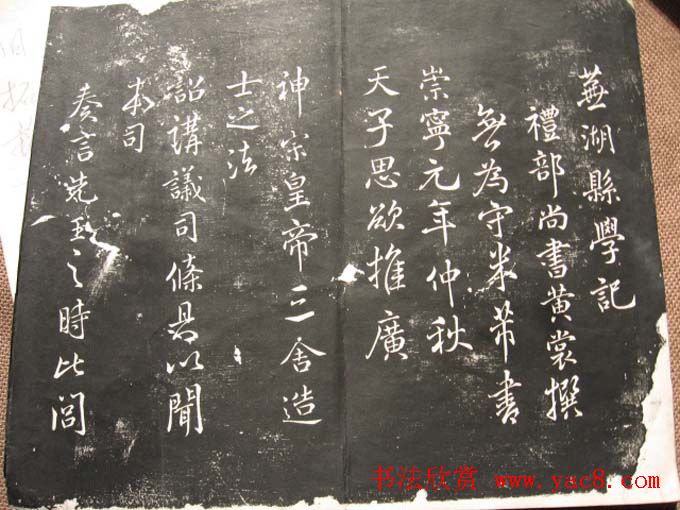 蕪湖縣學記
禮部尚書黃裳撰
無為守米芾書
崇寧元年仲秋
天子思欲推廣
神宗皇帝三舍造
士之法
詔講議司條具以聞
本司
奏言先王之時比閭
书法欣赏 www.yac8.com